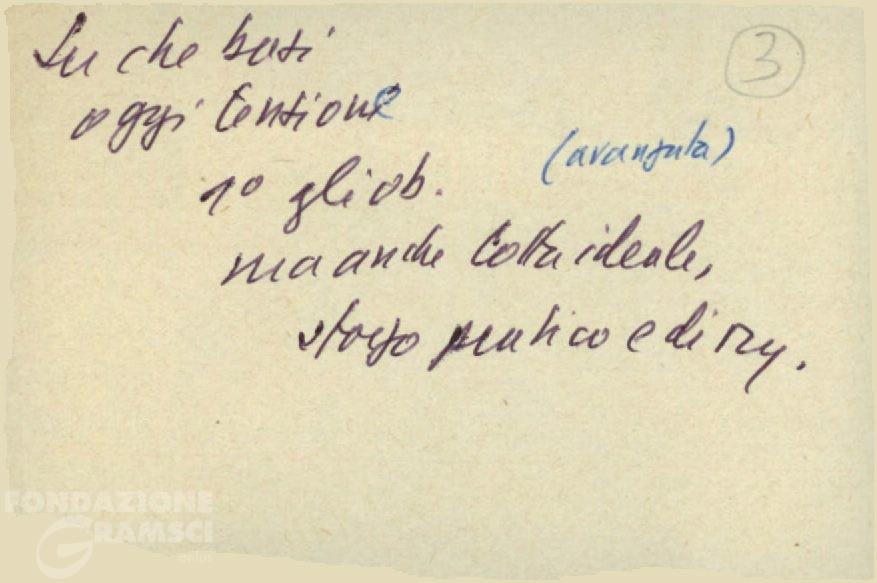 Su che basi
3
oggi tensione
(avanzata)
1º gli ob.
ma anche lotta ideale,
sforzo pratico e di
FONDAZIONE
GRAMSCI
onlus